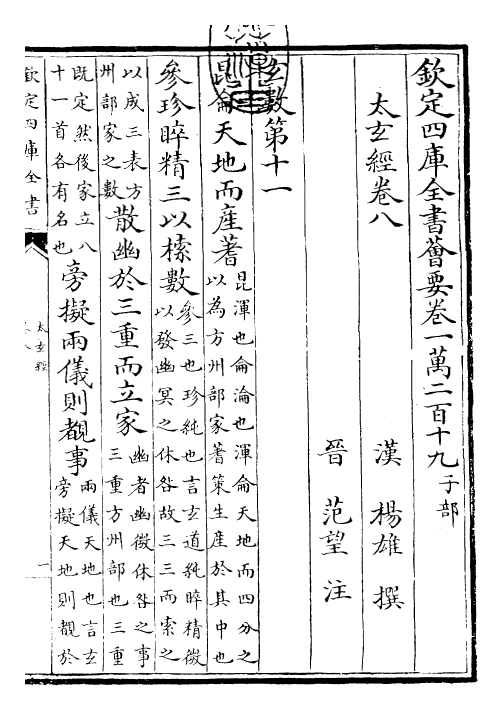 欽定四庫全書薈要卷一萬二百十九 子部
太玄經卷八 漢 楊雄 撰
晉 范望 注
玄數第十一
昆侖天地而產蓍
昆渾也侖淪也渾侖天地而四分之
以為方州部家蓍策生產於其中也
參珍睟精三以榡數
參三也珍純也言玄道純睟精微
以發幽冥之休咎故三三而索之
以成三表方
州部家之數
散幽於三重而立家
幽者幽微休咎之事
三重方州部也三重
既定然後家立八
十一首各有名也
旁擬兩儀則覩事
兩儀天地也言玄
旁擬天地則覩於
欽定四庫全書
太玄經
一